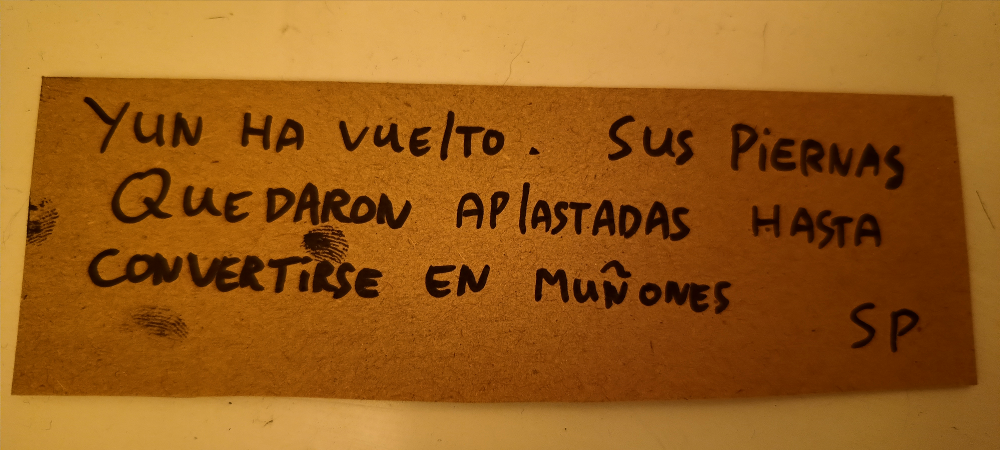 YUN HA VUElTO. SUS PiERNAS
QUEDARON APlASTADAS HASTA
CONVERTiRSE EN MUÑONES
SP